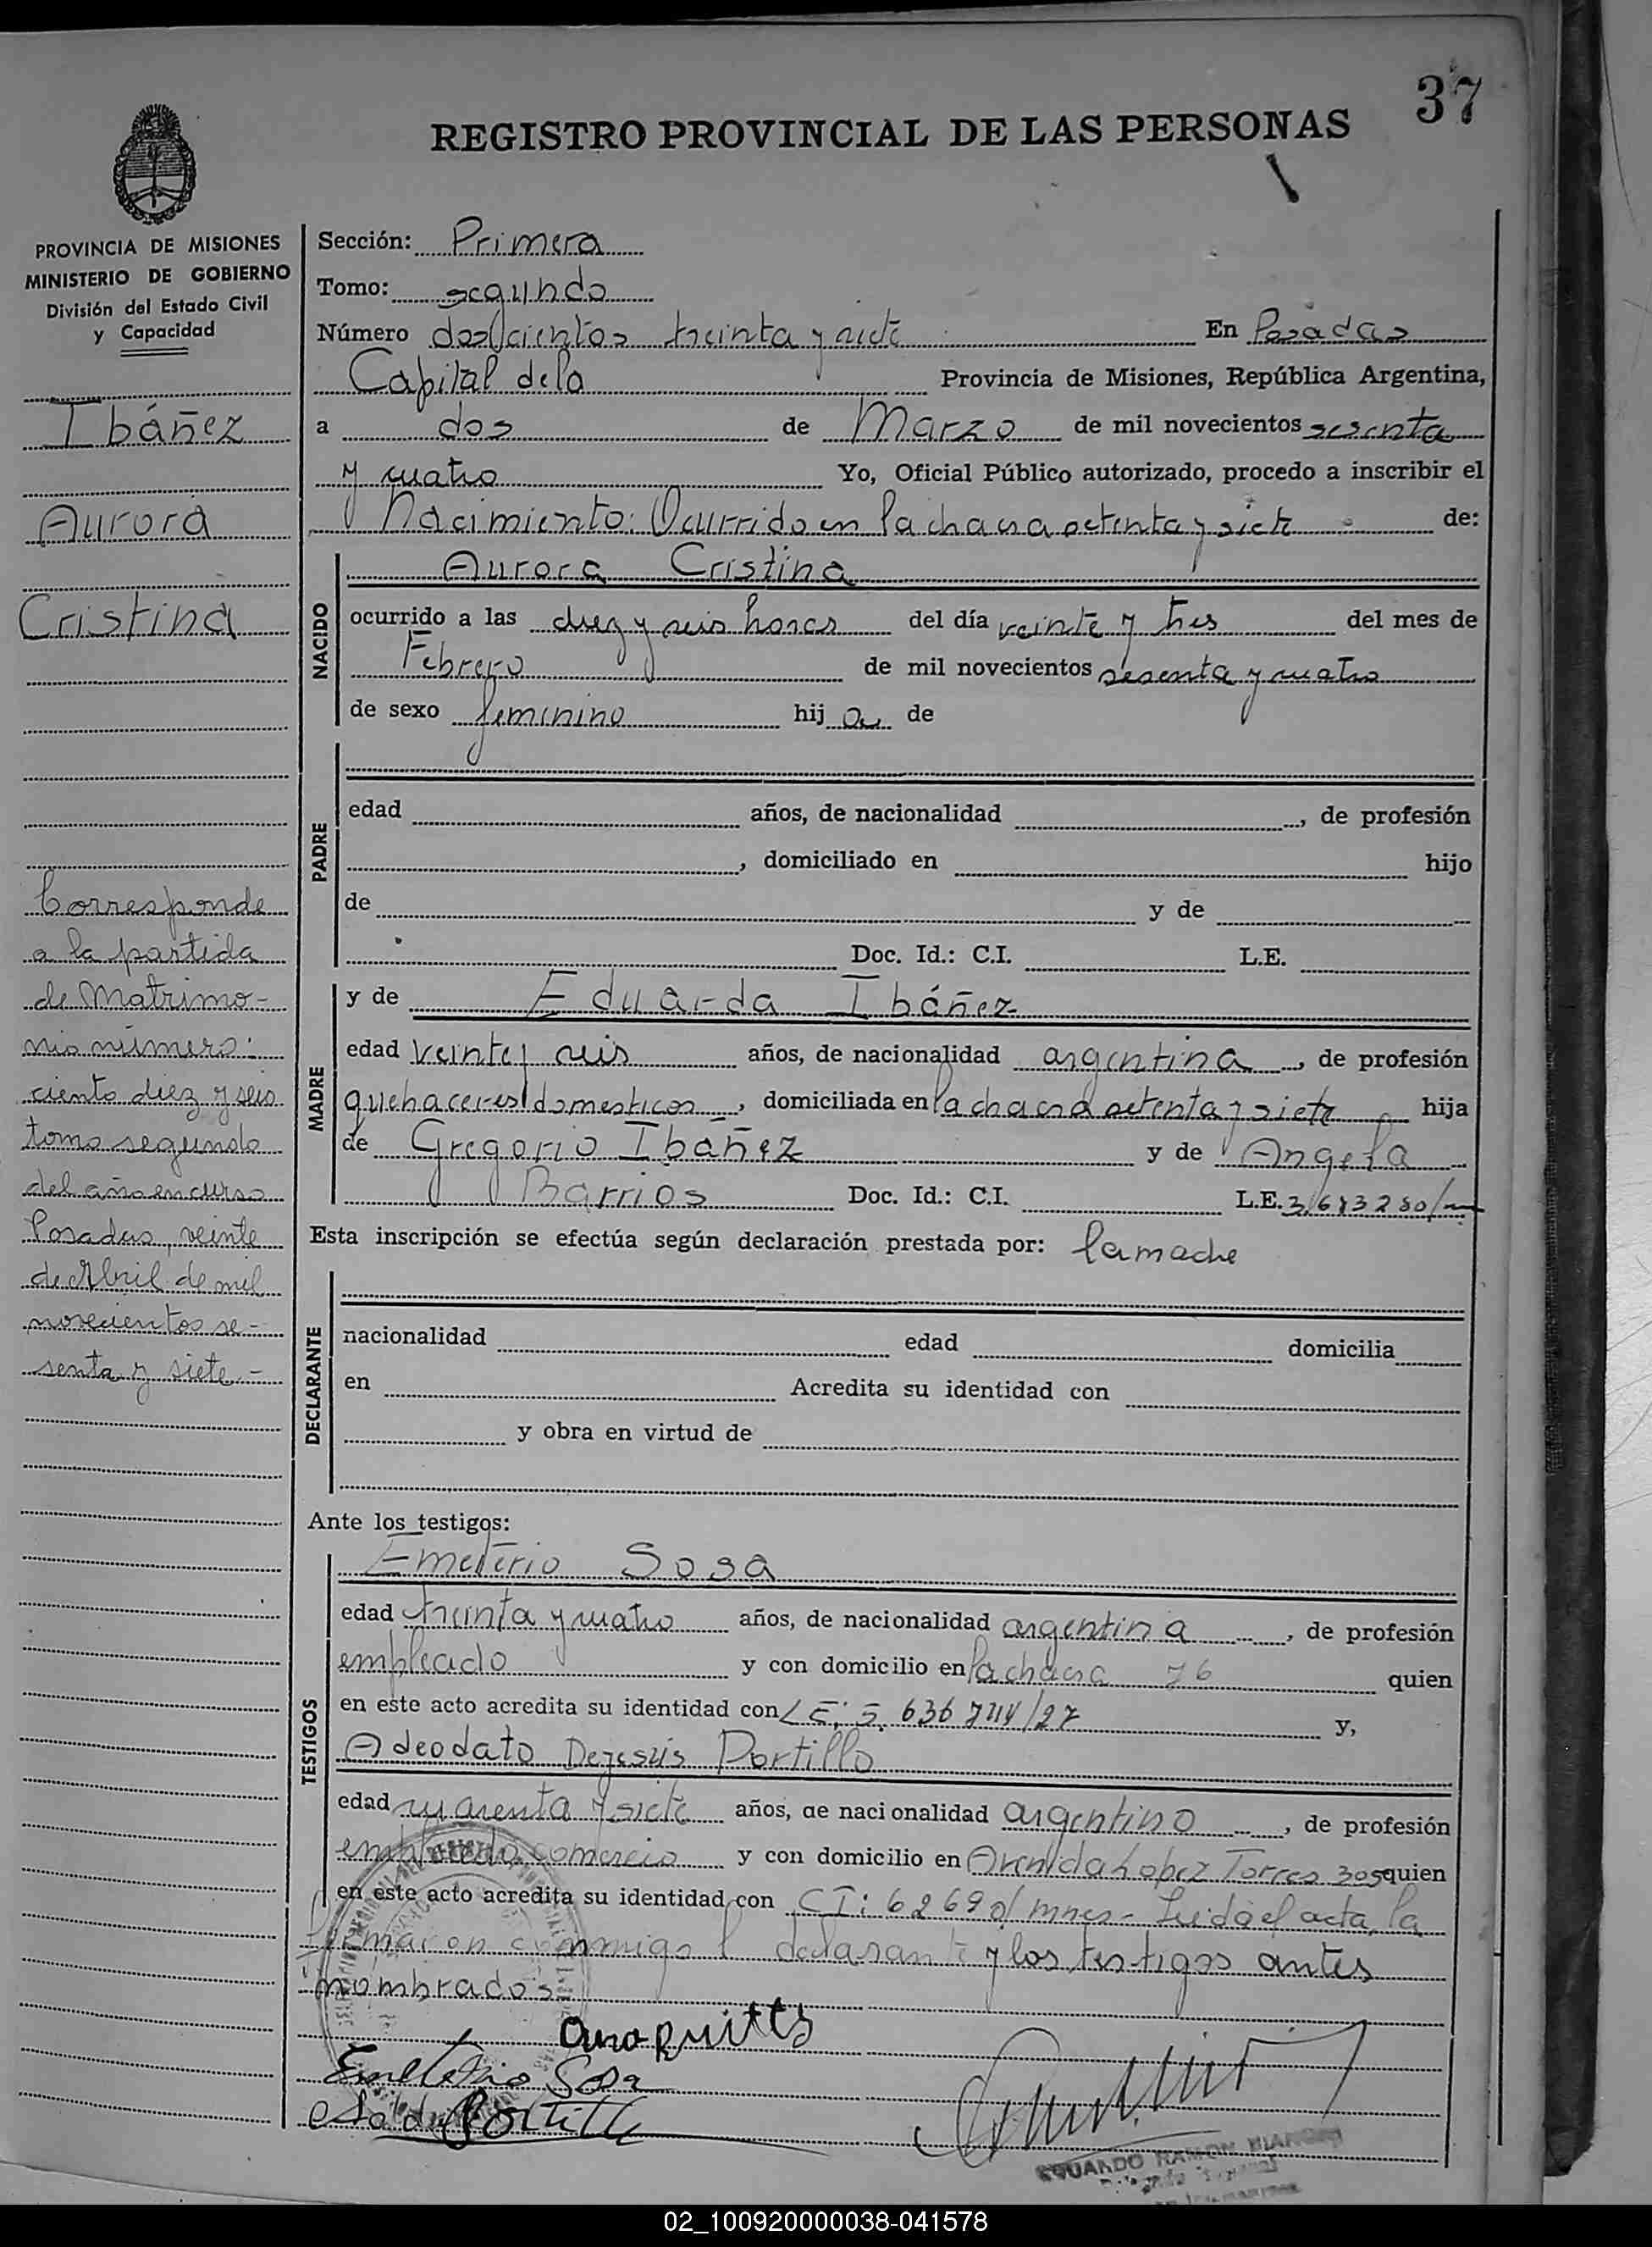 37
REGISTRO PROVINCIAL DE LAS PERSONAS
PROVINCIA DE MISIONES
MINISTERIO DE GOBIERNO
División del Estado Civil
y Capacidad
Ibáñez
Aurora
Cristina
Corresponde
a la partida
de Matrimo-
nio número:
ciento diez y seis
tomo segundo
del año en curso
Posadas, veinte
de Abril de mil
novecientos se-
senta y siete.-
Sección: Primera
Tomo: segundo
Número doscientos treinta y siete En Posadas
Capital de la Provincia de Misiones, República Argentina,
a dos de Marzo de mil novecientos sesenta
y cuatro Yo, Oficial Público autorizado, procedo a inscribir el
Nacimiento: Ocurrido en la chacra setenta y siete de:
NACIDO
Aurora Cristina
ocurrido a las diez y seis horas del día veinte y tres del mes de
Febrero de mil novecientos sesenta y cuatro
de sexo feminino hij a de
PADRE
edad años, de nacionalidad , de profesión
, domiciliado en hijo
de y de
Doc. Id.: C.I. L.E.
MADRE
y de Eduarda Ibáñez
edad veinte y seis años, de nacionalidad argentina , de profesión
quehaceres domesticos , domiciliada en la chacra setenta y siete hija
de Gregorio Ibáñez y de Angela
Barrios Doc. Id.: C.I. L.E.
Esta inscripción se efectúa según declaración prestada por: la madre
DECLARANTE
nacionalidad edad domicilia
en Acredita su identidad con
y obra en virtud de
Ante los testigos:
TESTIGOS
Emeterio Sosa
edad treinta y cuatro años, de nacionalidad argentina , de profesión
empleado y con domicilio en la chacra 76 quien
en este acto acredita su identidad con L E: 5. 636 744/27 y,
Adeodato Dejesús Portillo
edad cuarenta y siete años, de nacionalidad argentino , de profesión
empleado comercio y con domicilio en Avenida Lopez Torres 305 quien
en este acto acredita su identidad con CI: 62690/ mnes- Leida el acta, la
firmaron conmigo l declarante y los testigos antes
nombrados
Emeterio Sosa
Portillo
EDUARDO RAMON
02_100920000038-041578